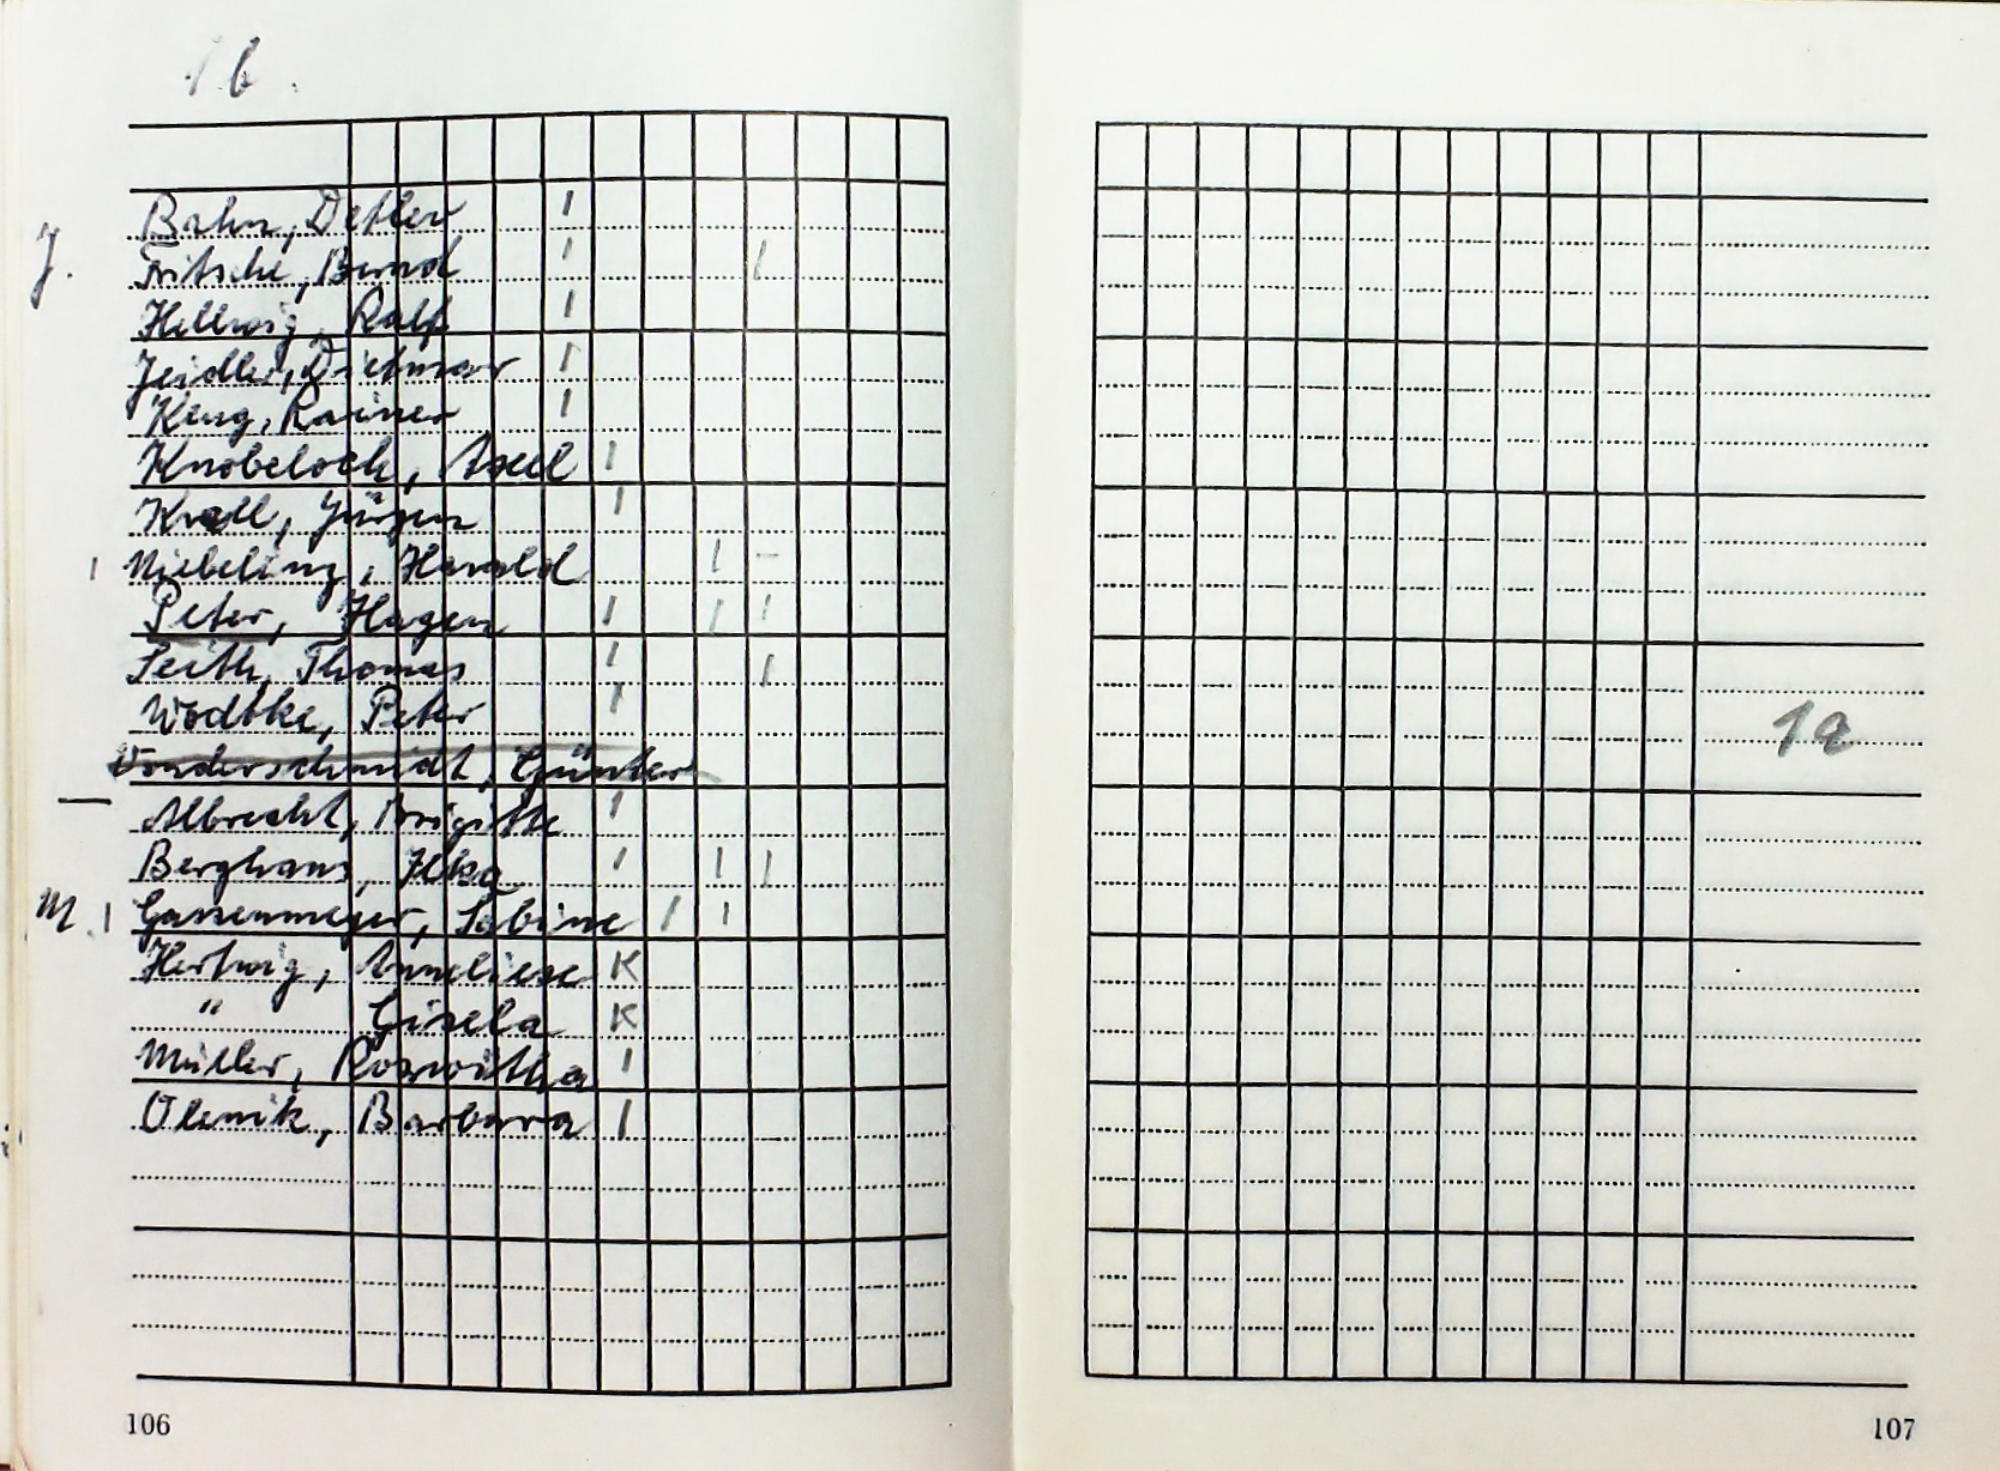 1b.
Bahn, Detlev I
J. Fritsche, Bernd I I
Hellwig, Ralf I
Jeidler, Dietmar I
Keug, Rainer I
Knobeloch, Axel I
Krall, Jürgen I
I Niebeling, Harald I –
Peter, Hagen I I I
Seith, Thomas I I
Wodtke, Peter I
Vonderschmidt, Günter
— Albrecht, Brigitte I
Berghaus, Ilka I I I
M. I Gassenmeyer, Sabine I I
Hertwig, Anneliese K
" Gisela K
Müller, Roswitha I
Olenik, Barbara I
106
1a
107